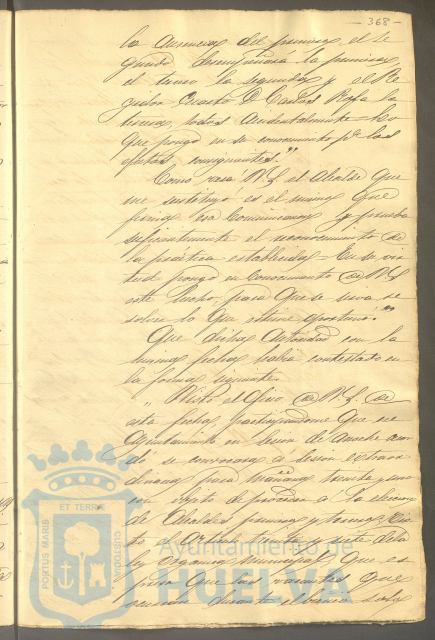 - 368 -
la ausencia del primero, el se
gundo desempeñará la primera
el tercero la segunda y el Re
gidor Cuarto D. Carlos Rafa la
tercera, todos accidentalmente = Lo
que pongo en su conocimiento pª los
efectos consiguientes."
Como verá V.S. el Alcalde que
me sustituyó es el mismo que
firma esa comunicacion y prueba
suficientemente el reconocimiento de
la práctica establecida = En su vir
tud pongo en conocimiento de V.S.
este hecho, para que se sirva re
solver lo que estime oportuno."
Que dicha Autoridad con la
misma fecha habia contestado en
la forma siguiente.
"Visto el oficio de V.S. de
esta fecha, participandome que ese
Ayuntamiento en sesion de anoche acor
dó se convocara á sesion extraor
dinaria para mañana treinta y uno
con objeto de proceder á la eleccion
de Alcaldes primero y tercero, Vis
to el Articulo treinta y siete de la
ley organica municipal que es
presa que las vacantes que
ocurran durante el bienio
ET TERRA
PORTUS MARIS
CUSTODIA
Ayuntamiento de
HUELVA